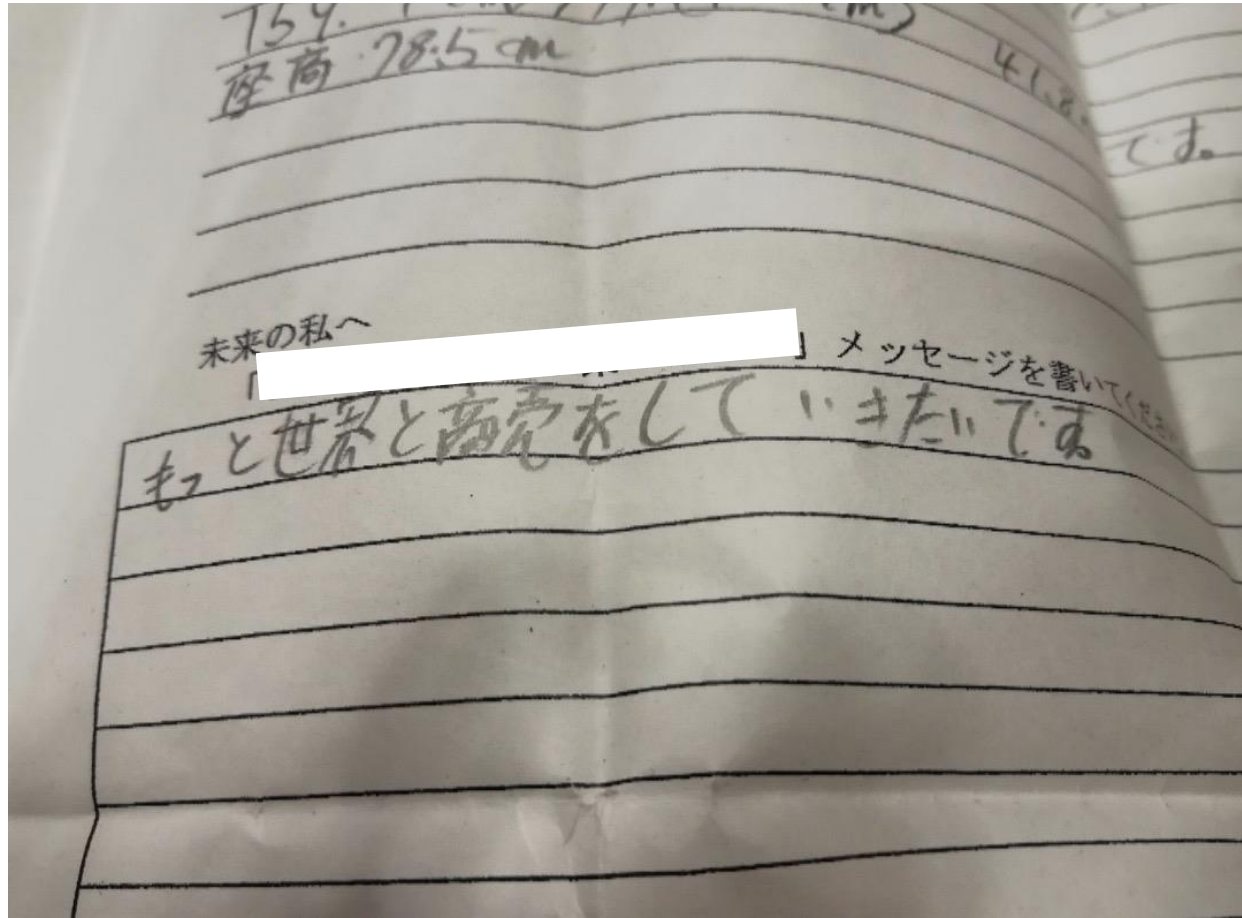 座高 78.5cm
です。
未来の私へ
「 」メッセージを書いてください
もっと世界と商売をしていきたいです。